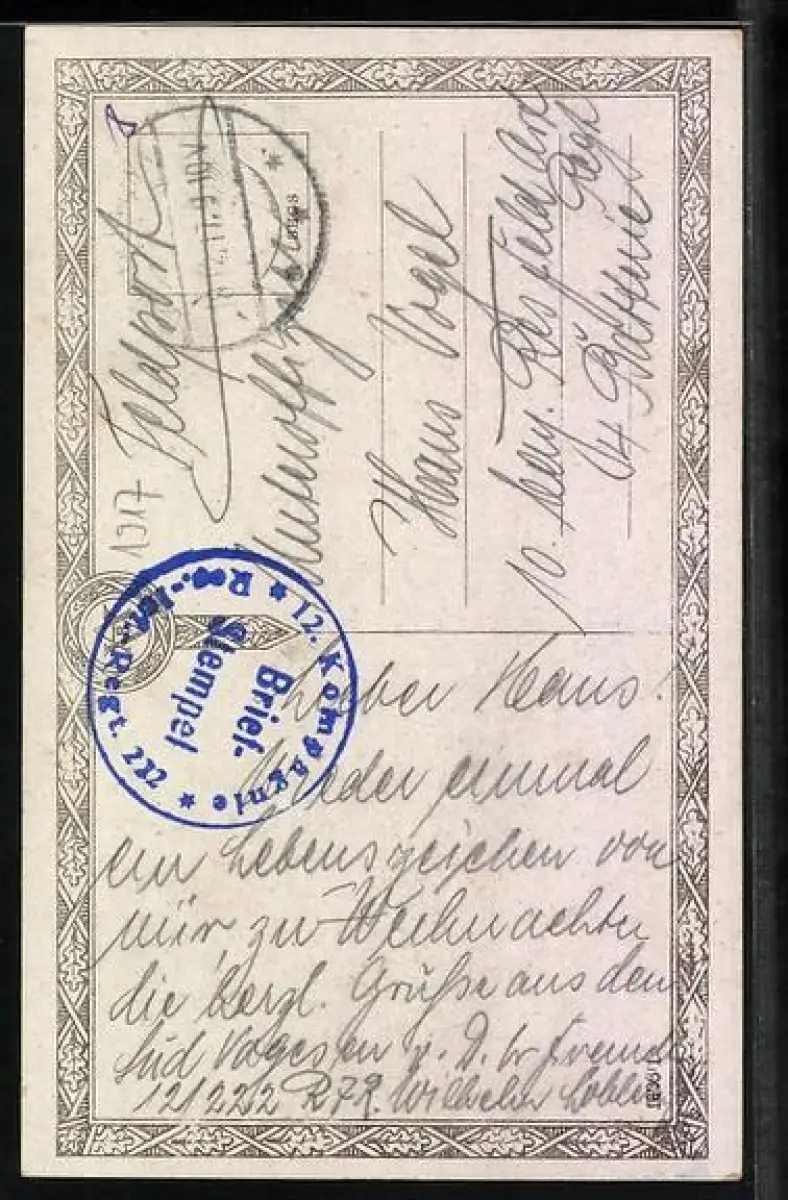 Feldpost
1917
Unteroffiz
Hans Vogel
10. bay. Res Feld Art
Regt
4 Batterie
12. Kompagnie * Res.-Inf.-Regt. 222 *
Brief-
Stempel
Lieber Hans!
Wieder einmal
ein Lebenszeichen von
mir, zu Weihnachten
die herzl. Grüße aus den
Süd Vogesen z. D. br Freund
12/222 R.I.R. Wilhelm